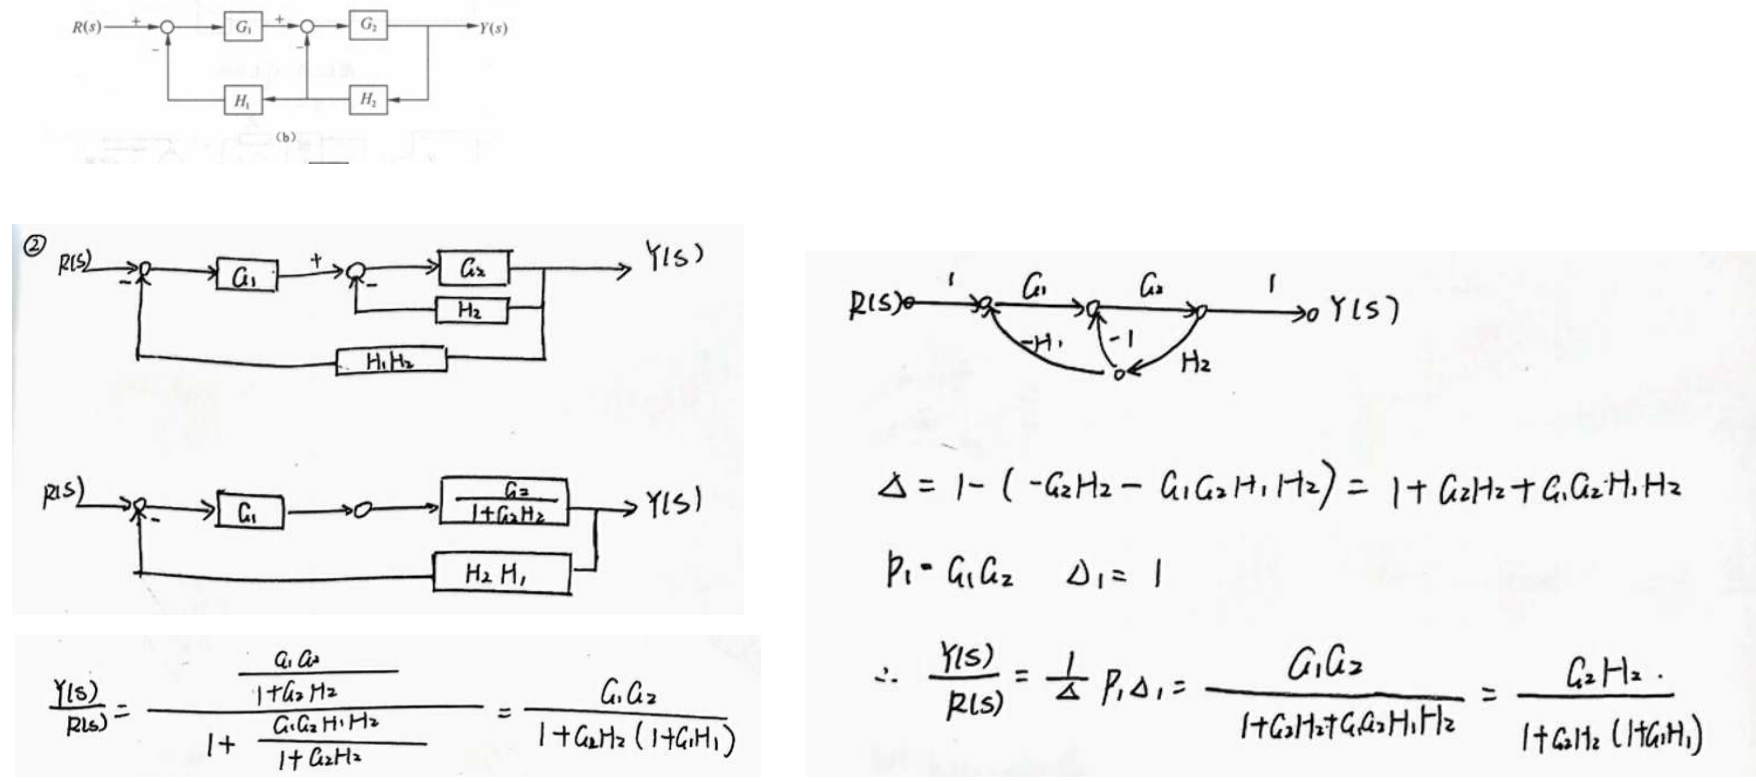 R(s) + G₁ + G₂ Y(s)
− −
H₁ H₂
(b)
② R(s) G₁ + G₂ Y(s)
− −
H₂
H₁H₂
R(s) G₁ G₂/(1+G₂H₂) Y(s)
−
H₂ H₁
Y(s)/R(s) = (G₁G₂/(1+G₂H₂))/(1+ G₁G₂H₁H₂/(1+G₂H₂)) = G₁G₂/(1+G₂H₂(1+G₁H₁))
R(s) 1 G₁ G₂ 1 Y(s)
−H₁ −1 H₂
Δ = 1-(-G₂H₂ - G₁G₂H₁H₂) = 1+G₂H₂+G₁G₂H₁H₂
P₁ = G₁G₂ Δ₁ = 1
∴ Y(s)/R(s) = 1/Δ P₁Δ₁ = G₁G₂/(1+G₂H₂+G₁G₂H₁H₂) = G₂H₂./(1+G₂H₂(1+G₁H₁))